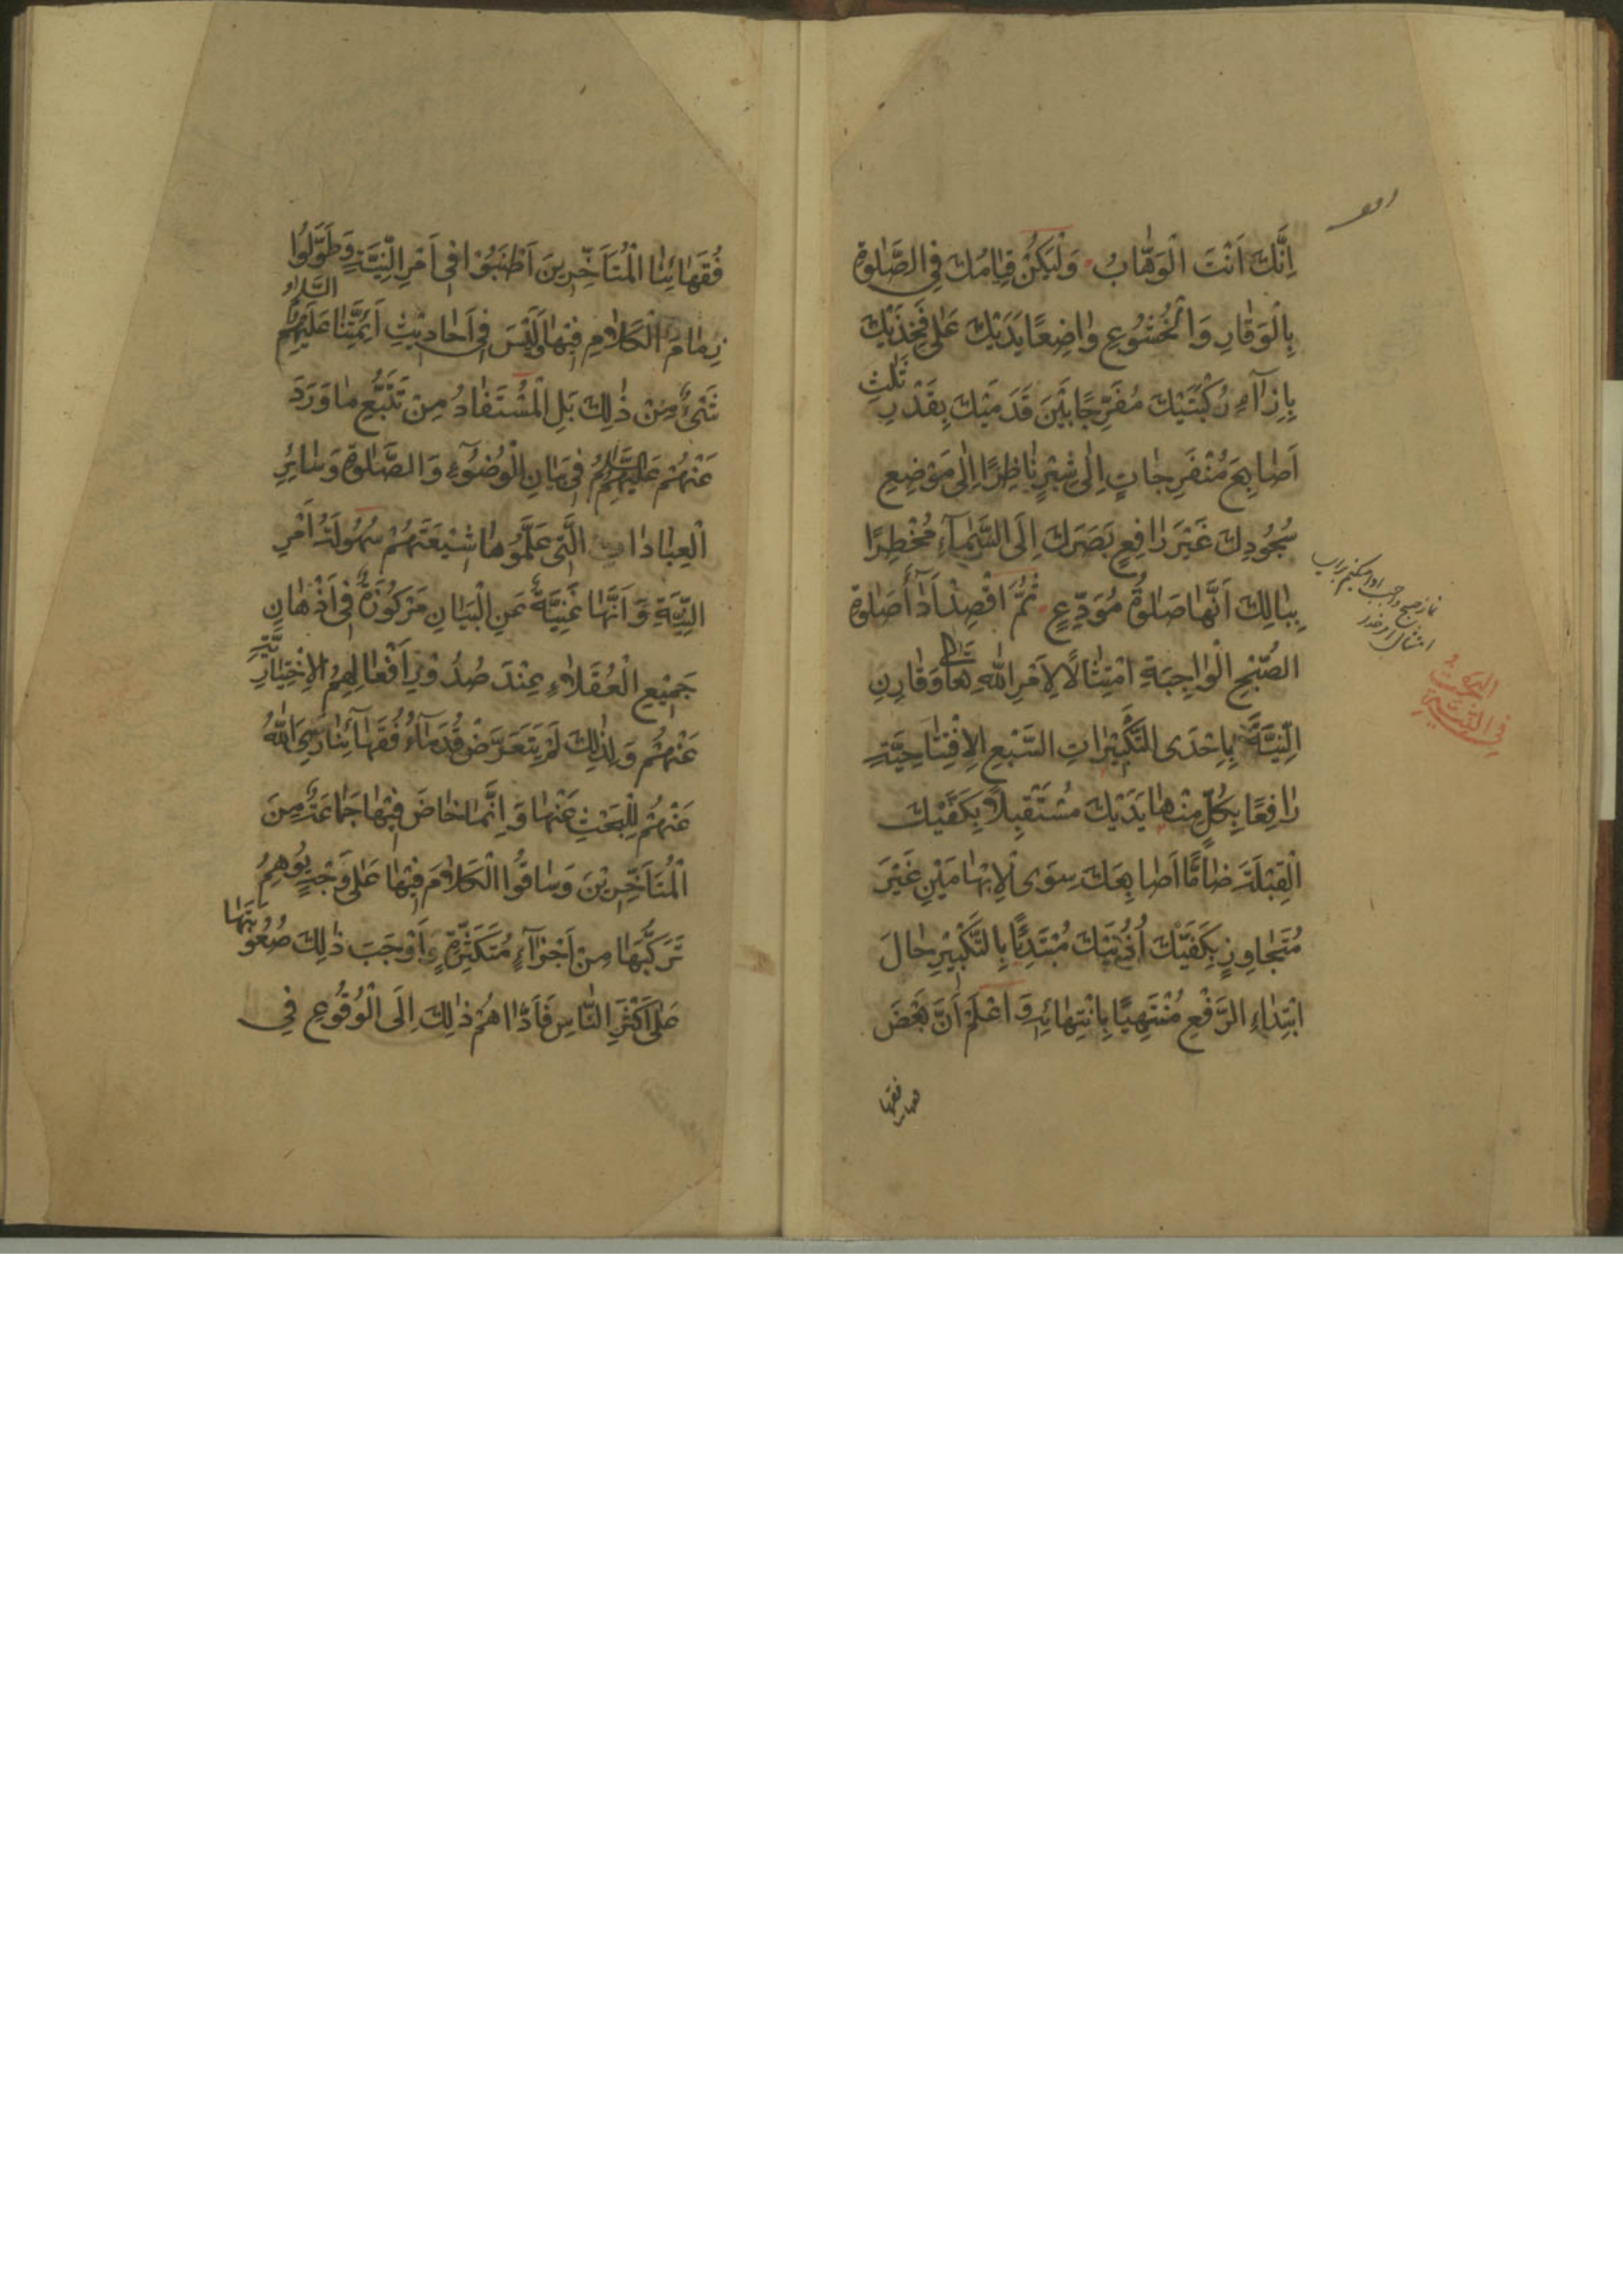 اِنَّكَ اَنْتَ الْوَهّٰابُ وَلْيَكُنْ قِيٰامُكَ فِي الصَّلٰوةِ
بِالْوَقٰارِ وَالْخُشُوعِ وٰاضِعًا يَدَيْكَ عَلٰى فَخِذَيْكَ
بِاِزٰآءِ رُكْبَتَيْكَ مُفَرِّجًا بَيْنَ قَدَمَيْكَ بِقَدْرِ ثَلٰثِ
اَصٰابِعَ مُنْفَرِجٰاتٍ اِلٰى شِبْرٍ نٰاظِرًا اِلٰى مَوْضِعِ
سُجُودِكَ غَيْرَ رٰافِعٍ بَصَرَكَ اِلَى السَّمٰآءِ مُخْطِرًا
بِبٰالِكَ اَنَّهٰا صَلٰوةُ مُوَدِّعٍ ثُمَّ اقْصِدْ اَدٰآءَ صَلٰوةِ
الصُّبْحِ الْوٰاجِبَةِ امْتِثٰالًا لِاَمْرِ اللّٰهِ تَعٰالٰى وَقٰارِنِ
النِّيَّةَ بِاِحْدَى التَّكْبِيْرٰاتِ السَّبْعِ الْاِفْتِتٰاحِيَّةِ
رٰافِعًا بِكُلٍّ مِنْهٰا يَدَيْكَ مُسْتَقْبِلًا بِكَفَّيْكَ
الْقِبْلَةَ ضٰامًّا اَصٰابِعَكَ سِوَى الْاِبْهٰامَيْنِ غَيْرَ
مُتَجٰاوِزٍ بِكَفَّيْكَ اُذُنَيْكَ مُبْتَدِئًا بِالتَّكْبِيْرِ حٰالَ
ابْتِدٰاءِ الرَّفْعِ مُنْتَهِيًا بِانْتِهٰائِهِ وَاعْلَمْ اَنَّ بَعْضَ
فقها
نماز صبح واجب ادا میکنم برای
فی النیة
فُقَهٰائِنَا الْمُتَاَخِّرِينَ اَطْنَبُوْا فِي اَمْرِ النِّيَّةِ وَطَوَّلُوا
زِمٰامَ الْكَلٰامِ فِيْهٰا وَلَيْسَ فِي اَحٰادِيْثِ اَئِمَّتِنٰا عَلَيْهِمُ السَّلٰامُ
شَيْءٌ مِنْ ذٰلِكَ بَلِ الْمُسْتَفٰادُ مِنْ تَتَبُّعِ مٰا وَرَدَ
عَنْهُمْ عَلَيْهِمُ السَّلٰامُ فِي بَيٰانِ الْوُضُوْٓءِ وَالصَّلٰوةِ وَسٰائِرِ
الْعِبٰادٰاتِ الَّتِي عَلَّمُوْهٰا شِيْعَتَهُمْ سُهُولَةُ اَمْرِ
النِّيَّةِ وَاَنَّهٰا غَنِيَّةٌ عَنِ الْبَيٰانِ مَرْكُوْزَةٌ فِي اَذْهٰانِ
جَمِيْعِ الْعُقَلٰاءِ عِنْدَ صُدُوْرِ اَفْعٰالِهِمُ الْاِخْتِيٰارِيَّةِ
عَنْهُمْ وَلِذٰلِكَ لَمْ يَتَعَرَّضْ قُدَمٰآءُ فُقَهٰآئِنٰا رَضِيَ اللّٰهُ
عَنْهُمْ لِلْبَحْثِ عَنْهٰا وَاِنَّمٰا خٰاضَ فِيْهٰا جَمٰاعَةٌ مِنَ
الْمُتَاَخِّرِيْنَ وَسٰاقُوا الْكَلٰامَ فِيْهٰا عَلٰى وَجْهٍ يُوْهِمُ
تَرَكُّبَهٰا مِنْ اَجْزٰآءٍ مُتَكَثِّرَةٍ وَاَوْجَبَ ذٰلِكَ صُعُوْبَتَهٰا
عَلٰى اَكْثَرِ النّٰاسِ فَاَدّٰاهُمْ ذٰلِكَ اِلَى الْوُقُوْعِ فِي